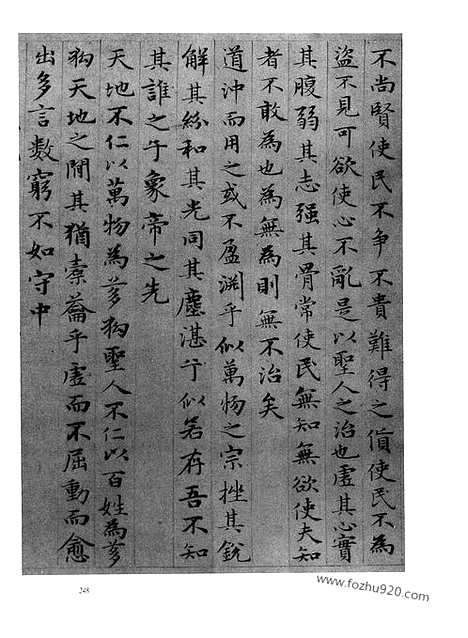 不尚賢使民不争不貴難得之貨使民不為
盜不見可欲使心不亂是以聖人之治也虛其心實
其腹弱其志强其骨常使民無知無欲使夫知
者不敢為也為無為則無不治矣
道沖而用之或不盈渊乎似萬物之宗挫其銳
解其紛和其光同其塵湛兮似若存吾不知
其誰之子象帝之先
天地不仁以萬物為芻狗聖人不仁以百姓為芻
狗天地之間其猶橐籥乎虛而不屈動而愈
出多言數窮不如守中
248
www.fozhu920.com